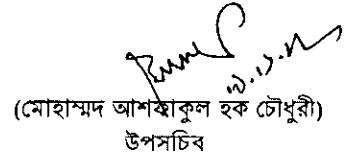 (মোহাম্মদ আশফাকুল হক চৌধুরী)
উপসচিব